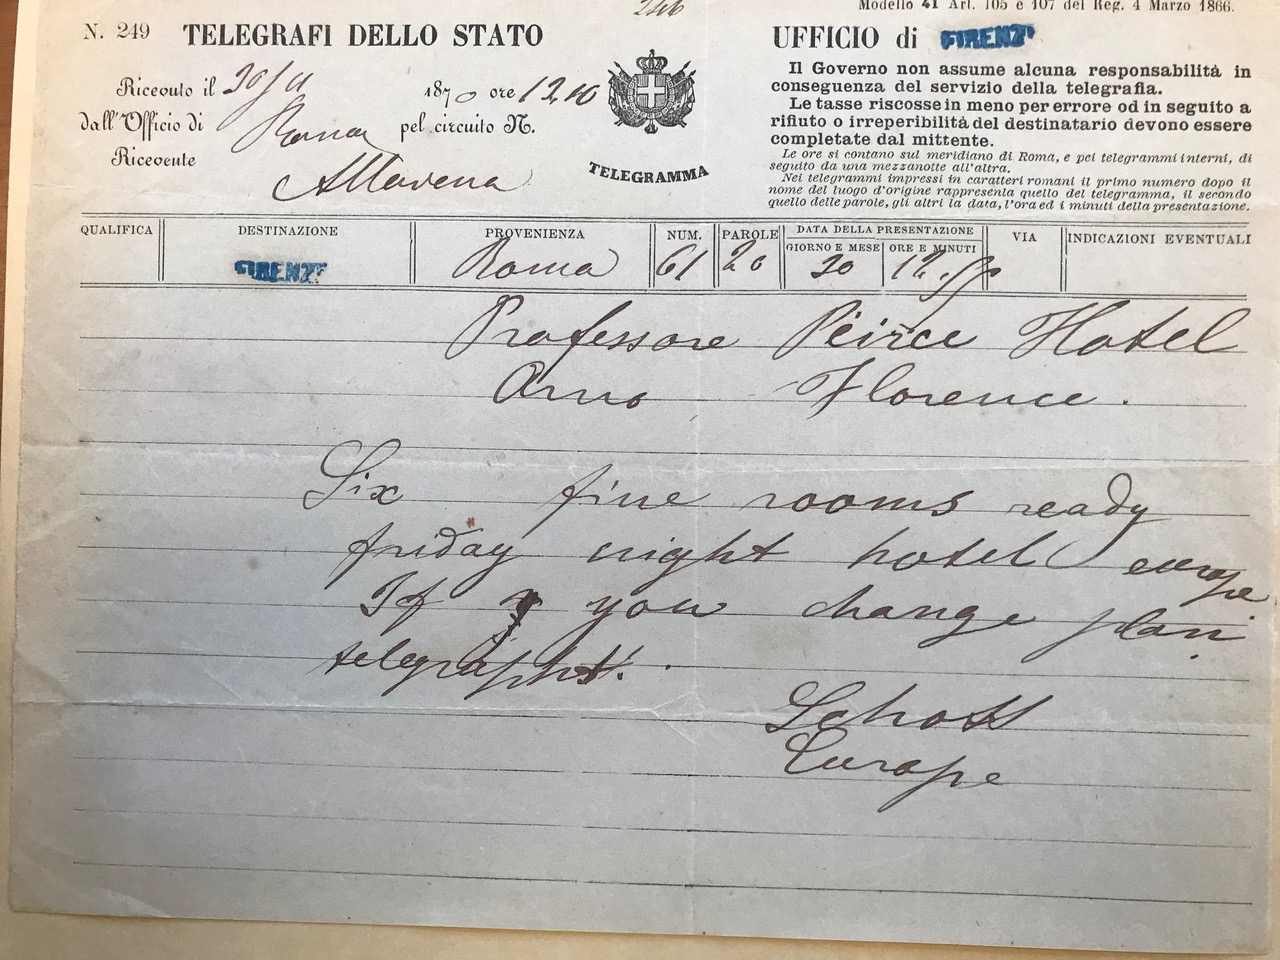 246
Modello 41 Art. 105 e 107 del Reg. 4 Marzo 1866.
N. 249 TELEGRAFI DELLO STATO
UFFICIO di FIRENZE
Ricevuto il 30/11 1870 ore 12,10
dall'Officio di Roma pel circuito N.
Ricevente
TELEGRAMMA
Il Governo non assume alcuna responsabilità in
conseguenza del servizio della telegrafia.
Le tasse riscosse in meno per errore od in seguito a
rifiuto o irreperibilità del destinatario devono essere
completate dal mittente.
Le ore si contano sul meridiano di Roma, e pei telegrammi interni, di
seguito da una mezzanotte all'altra.
Nei telegrammi impressi in caratteri romani il primo numero dopo il
nome del luogo d'origine rappresenta quello del telegramma, il secondo
quello delle parole, gli altri la data, l'ora ed i minuti della presentazione.
QUALIFICA DESTINAZIONE PROVENIENZA NUM. PAROLE DATA DELLA PRESENTAZIONE VIA INDICAZIONI EVENTUALI
GIORNO E MESE ORE E MINUTI
FIRENZE Roma 61 20 30
Professore Peirce Hotel
Arno Florence.
Six fine rooms ready
friday night hotel europe
If you change plan
telegraph.
Schott
Europe